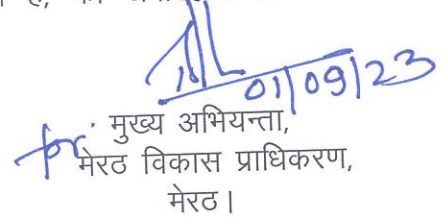 01/09/23
मुख्य अभियन्ता,
for मेरठ विकास प्राधिकरण,
मेरठ।